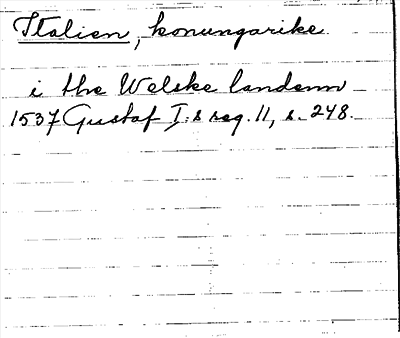 Italien, konungarike
i the Welske landenn
1537 Gustaf I:s reg. 11, s. 248.